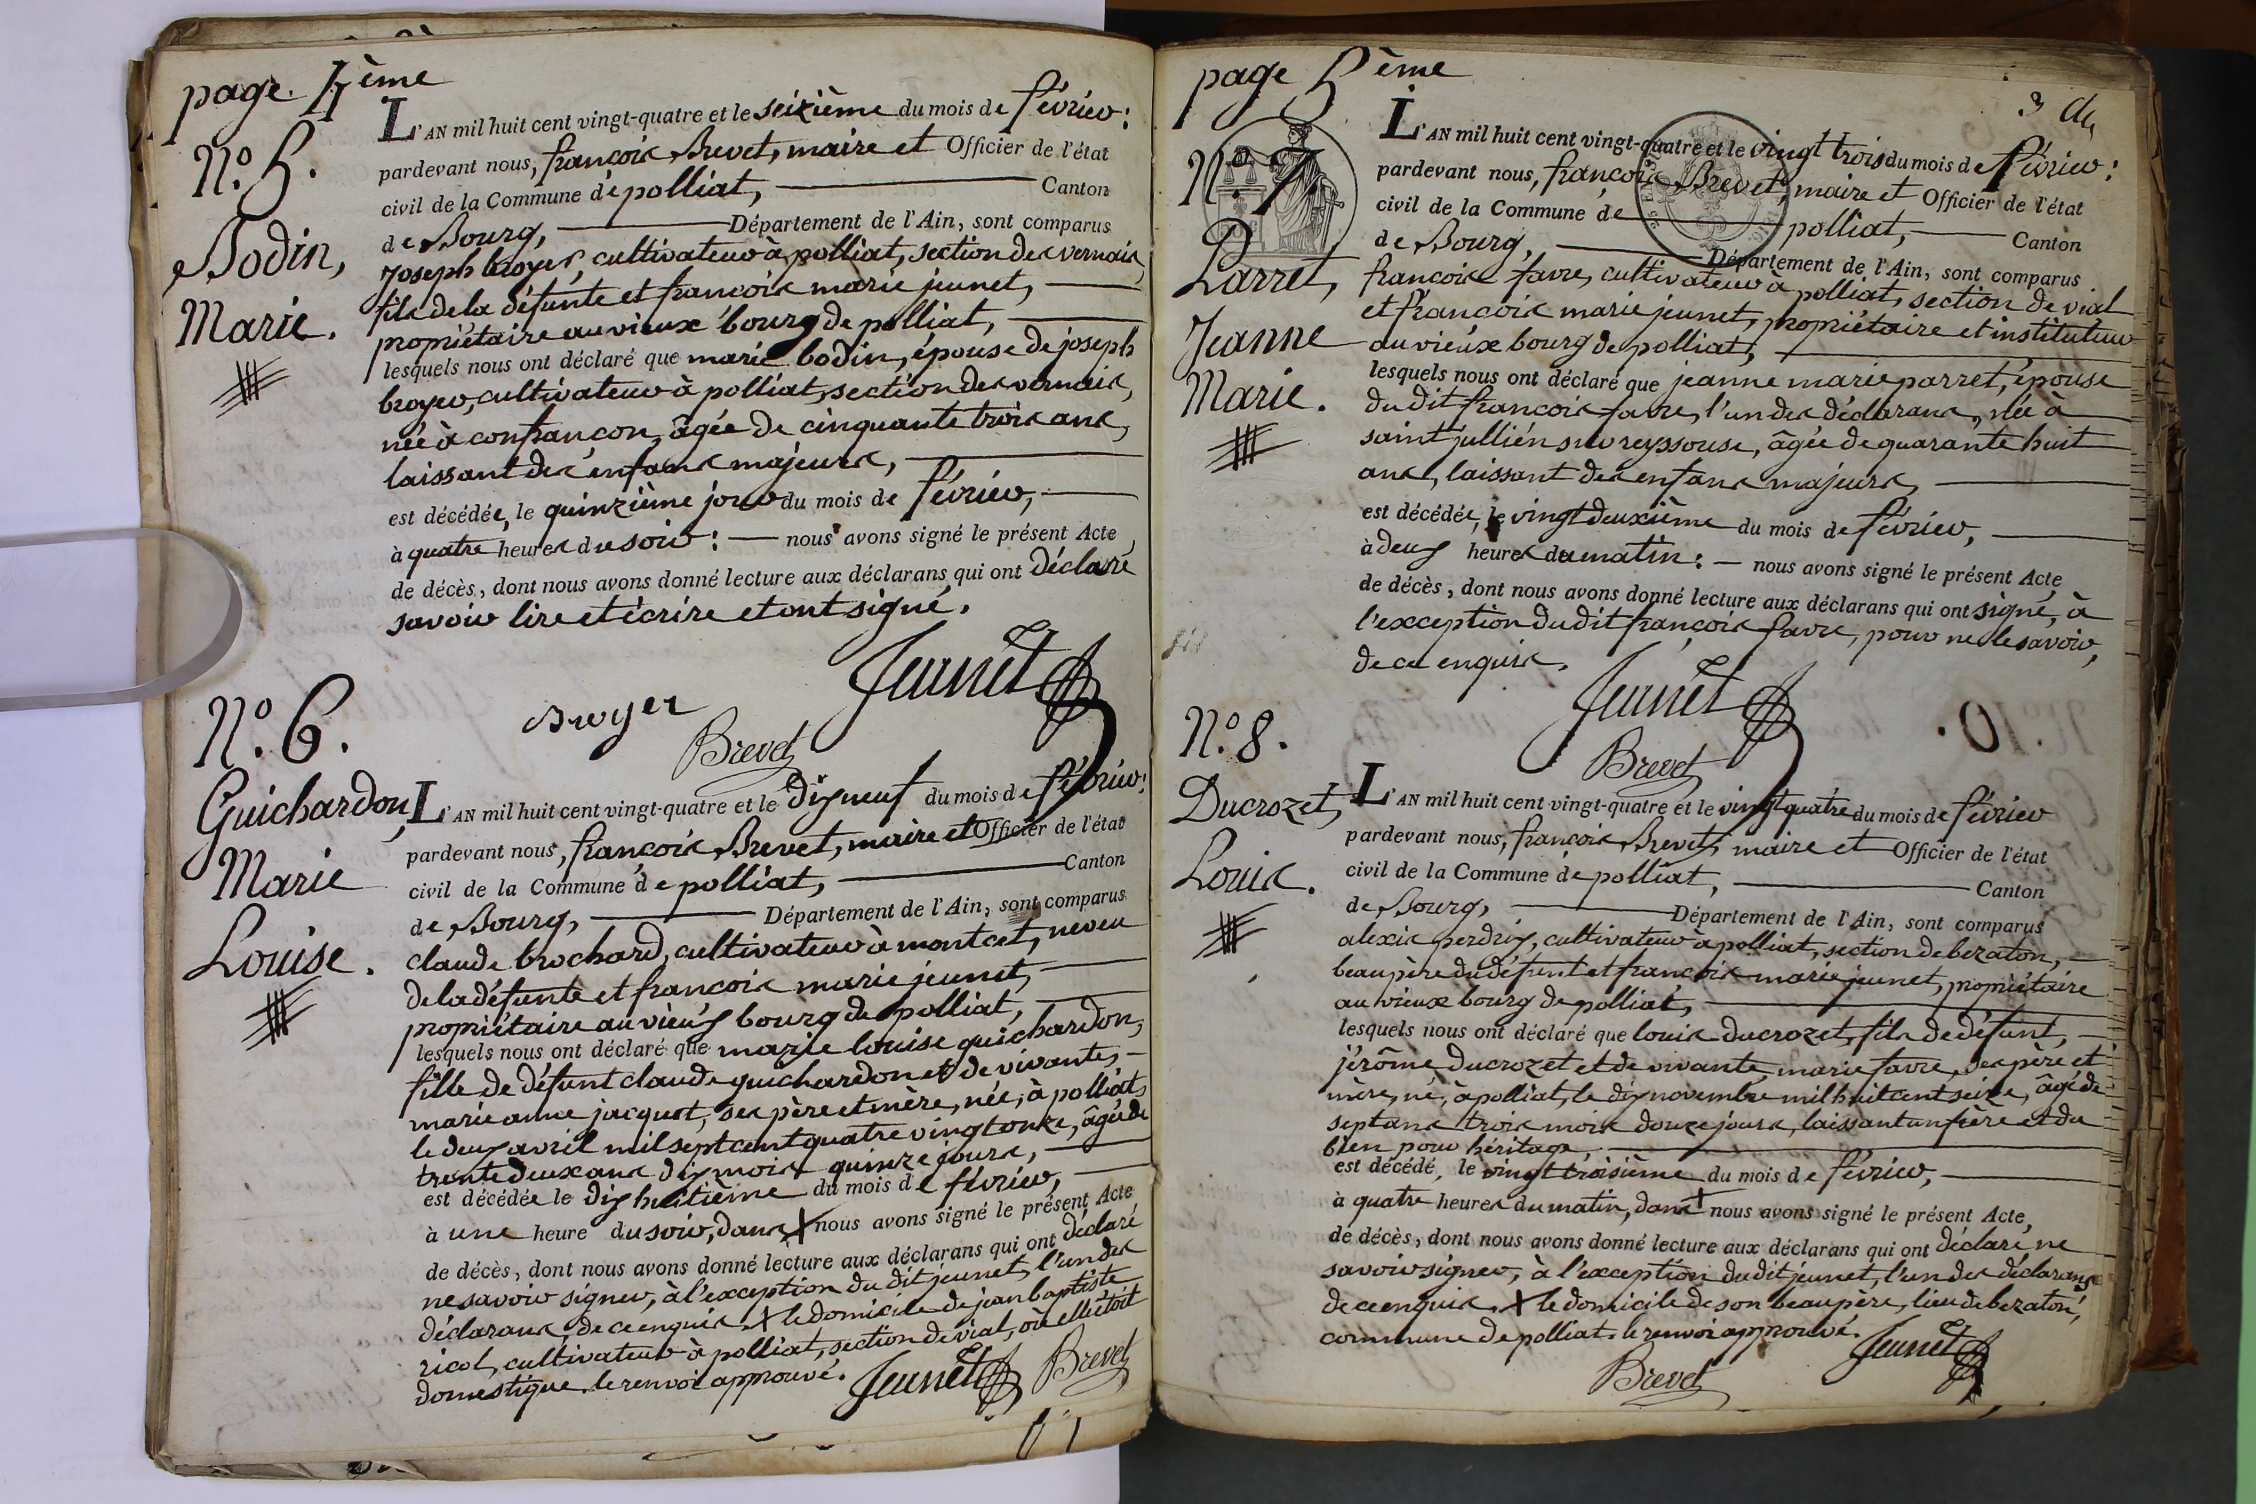 page 4ème
N.º 5.
Bodin,
Marie.
L'AN mil huit cent vingt-quatre et le seizième du mois de février:
pardevant nous, françois Brevet, maire et Officier de l'état
civil de la Commune de polliat, Canton
de Bourg, Département de l'Ain, sont comparus
Joseph broyer, cultivateur à polliat, section des vernais,
fils de la défunte et françois marie jeunet,
propriétaire au vieux bourg de polliat,
lesquels nous ont déclaré que marie bodin, épouse de joseph
broyer, cultivateur à polliat, section des vernais,
née à confrançon, âgée de cinquante trois ans,
laissant des enfans majeurs,
est décédée, le quinzième jour du mois de février,
à quatre heures du soir: nous avons signé le présent Acte
de décès, dont nous avons donné lecture aux déclarans qui ont déclaré
savoir lire et écrire et ont signé.
Jeunet
Broyer
Brevet
N.º 6.
Guichardon,
Marie
Louise.
L'AN mil huit cent vingt-quatre et le dix neuf du mois de février:
pardevant nous, françois Brevet, maire et Officier de l'état
civil de la Commune de polliat, Canton
de Bourg, Département de l'Ain, sont comparus
claude brochard, cultivateur à montcet, neveu
de la défunte et françois marie jeunet,
propriétaire au vieux bourg de polliat,
lesquels nous ont déclaré que marie louise guichardon,
fille de défunt claude guichardon et de vivante,
marie anne jacquet, ses père et mère, née, à polliat,
le deux avril mil sept cent quatre vingt onze, âgée de
trente deux ans dix mois quinze jours,
est décédée le dix huitième du mois de février,
à une heure du soir, dans X nous avons signé le présent Acte
de décès, dont nous avons donné lecture aux déclarans qui ont déclaré
ne savoir signer, à l'exception du dit jeunet, l'un des
déclarans, de ce enquis. X le domicile de jean baptiste
ricol, cultivateur à polliat, section de vial, où elle étoit
domestique. le renvoi approuvé. Jeunet Brevet
page 5ème
3 du
N.º 7.
Parret,
Jeanne
Marie.
L'AN mil huit cent vingt-quatre et le vingt trois du mois de février:
pardevant nous, françois Brevet, maire et Officier de l'état
civil de la Commune de polliat, Canton
de Bourg, Département de l'Ain, sont comparus
françois favre, cultivateur à polliat, section de vial
et françois marie jeunet, propriétaire et instituteur
au vieux bourg de polliat,
lesquels nous ont déclaré que jeanne marie parret, épouse
du dit françois favre, l'un des déclarans, née à
saint jullién sur reyssouse, âgée de quarante huit
ans, laissant des enfans majeurs,
est décédée, le vingt deuxième du mois de février,
à deux heures du matin: nous avons signé le présent Acte
de décès, dont nous avons donné lecture aux déclarans qui ont signé, à
l'exception du dit françois favre, pour ne le savoir,
de ce enquis.
Jeunet
Brevet
N.º 8.
Ducrozet,
Louis.
L'AN mil huit cent vingt-quatre et le vingt quatre du mois de février
pardevant nous, françois Brevet, maire et Officier de l'état
civil de la Commune de polliat, Canton
de Bourg, Département de l'Ain, sont comparus
alexis perdrix, cultivateur à polliat, section de bezaton,
beaupère du défunt et françois marie jeunet, propriétaire
au vieux bourg de polliat,
lesquels nous ont déclaré que louis ducrozet, fils de défunt,
jérôme ducrozet et de vivante, marie favre, ses père et
mère, né, à polliat, le dix novembre mil huit cent seize, âgé de
sept ans trois mois douze jours, laissant un frère et du
bien pour héritage,
est décédé, le vingt troisième du mois de février,
à quatre heures du matin, dans X nous avons signé le présent Acte
de décès, dont nous avons donné lecture aux déclarans qui ont déclaré ne
savoir signer, à l'exception du dit jeunet, l'un des déclarans
de ce enquis. X le domicile de son beaupère, lieu de bezaton,
commune de polliat. le renvoi approuvé.
Jeunet
Brevet